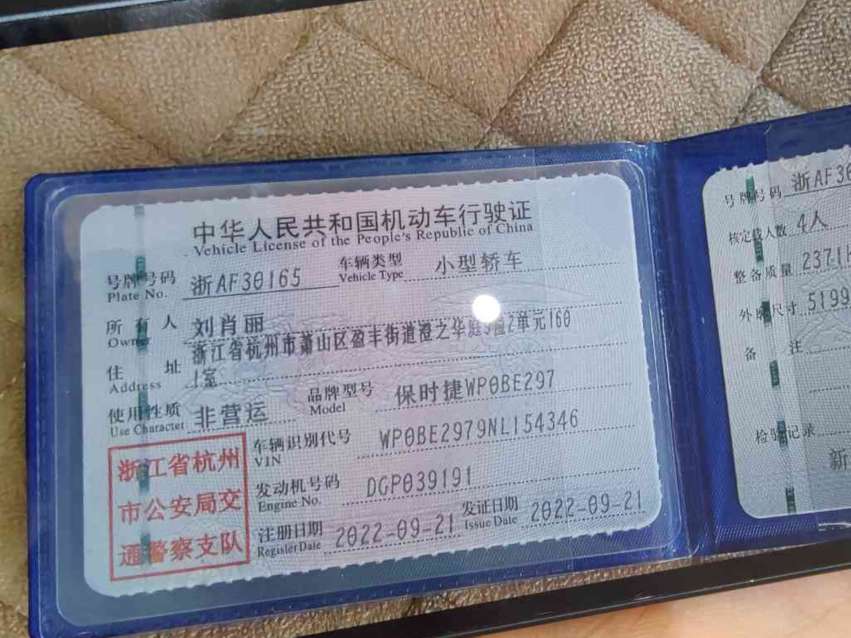 中华人民共和国机动车行驶证
Vehicle License of the People's Republic of China
号牌号码 浙AF30165 车辆类型 小型轿车
Plate No. Vehicle Type
所有人 刘肖丽
Owner
浙江省杭州市萧山区盈丰街道澄之华庭 2单元160
住址 1室
Address
使用性质 非营运 品牌型号 保时捷WP0BE297
Use Character Model
车辆识别代号 WP0BE2979NL154346
VIN
发动机号码 DGP039191
Engine No.
注册日期 2022-09-21 发证日期 2022-09-21
Register Date Issue Date
浙江省杭州
市公安局交
通警察支队
号牌号码 浙AF30
核定载人数 4人
整备质量 2371k
外廓尺寸 5199
备注
检验记录
新